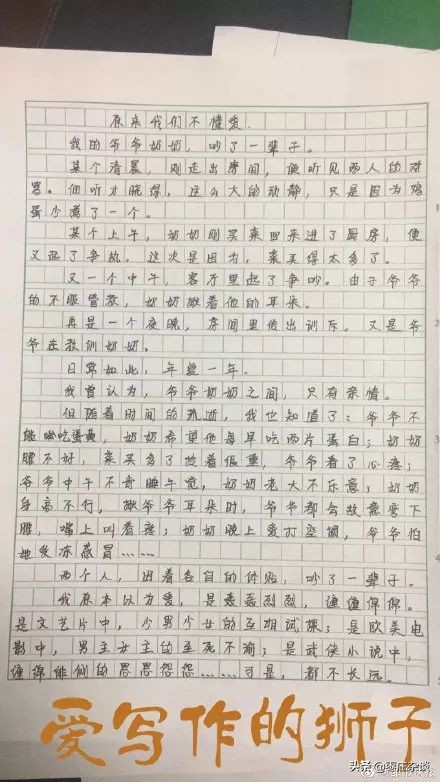 原来我们不懂爱.
我的爷爷奶奶，吵了一辈子。
某个清晨，刚走出房间，便听见两人的对
骂。细听才晓得，这么大的动静，只是因为鸡
蛋少煮了一个。
某个上午，奶奶刚买菜回来进了厨房，便
又起了争执。这次是因为，菜买得太多了。
又一个中午，客厅里起了争吵。由于爷爷
的不服管教，奶奶揪着他的耳朵。
再是一个夜晚，房间里传出训斥。又是爷
爷在教训奶奶。
日常如此，年复一年。
我曾认为，爷爷奶奶之间，只有亲情。
但随着时间的流逝，我也知道了：爷爷不
能吃蛋黄，奶奶希望他每早吃两片蛋白；奶奶
腰不好，菜买多了拎着很重，爷爷看了心疼；
爷爷中午不肯睡午觉，奶奶老大不乐意；奶奶
身高不行，揪爷爷耳朵时，爷爷都会故意弯下
腰，嘴上叫着疼；奶奶晚上爱打空调，爷爷怕
她受冻感冒……
两个人，因着各自的体贴，吵了一辈子。
我原本以为爱，是轰轰烈烈，缠缠绵绵。
是文艺片中，少男少女的互相试探；是欧美电
影中，男主女主的至死不渝；是武侠小说中，
缠绵悱恻的恩恩怨怨……可是，都不长远。
爱写作的狮子
头条@枣庄杂谈